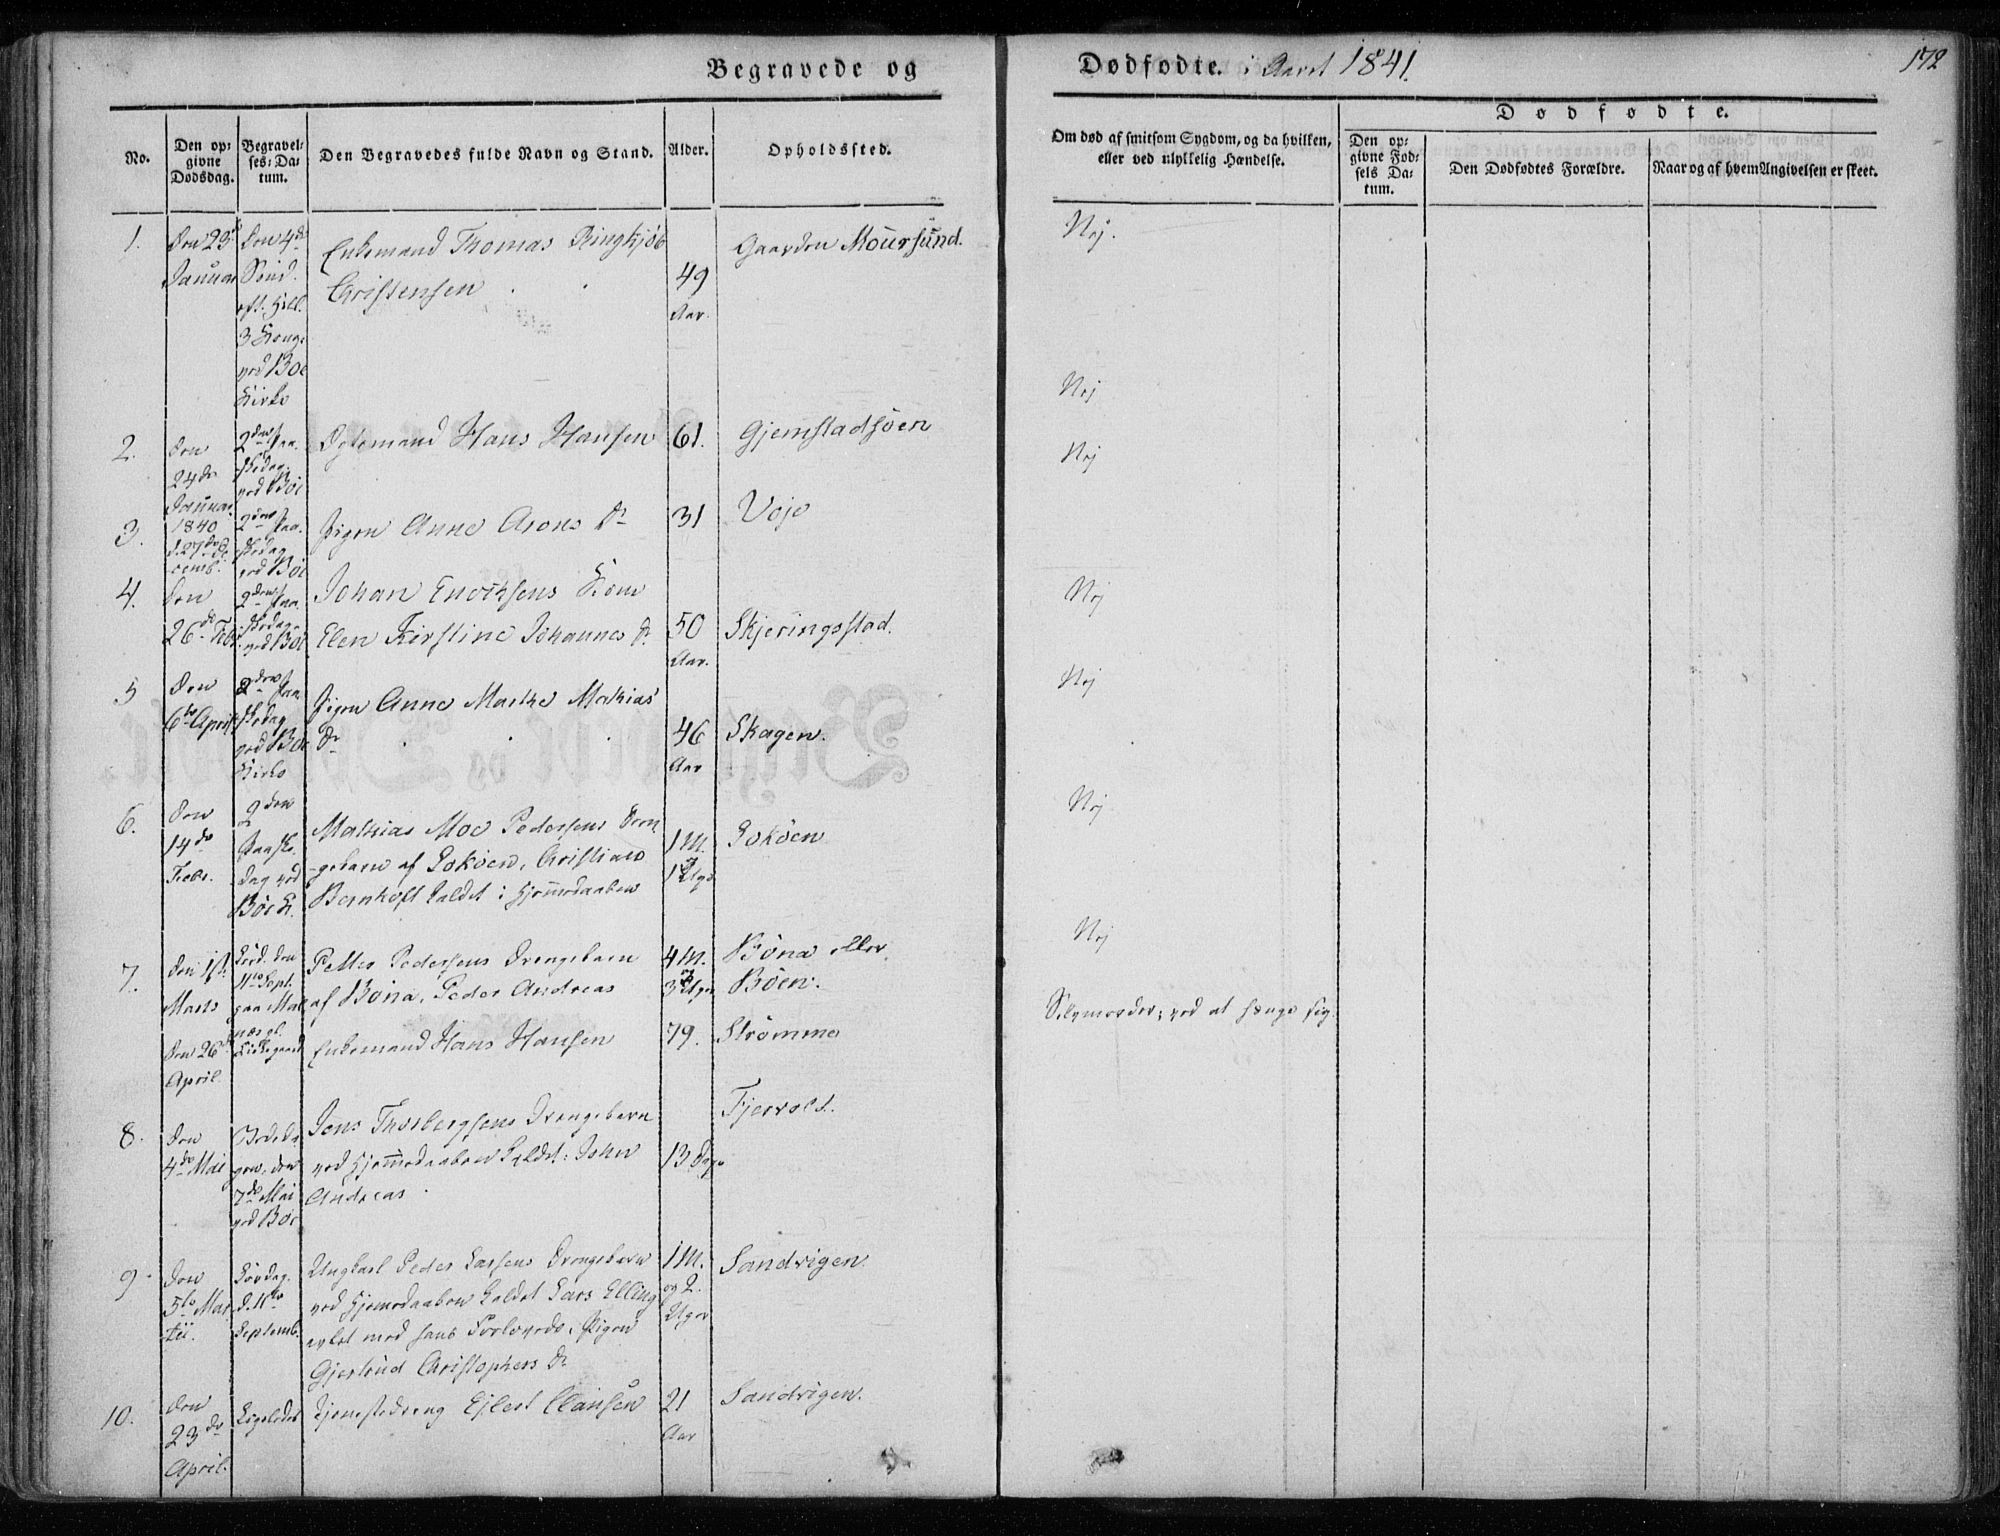 Begravede og Dødfødte. i Aaret 1841.
172
No.
Den opgivne Dødsdag.
Begravelses-Datum.
Den Begravedes fulde Navn og Stand.
Alder.
Opholdssted.
Om død af smitsom Sygdom, og da hvilken, eller ved ulykkelig Hændelse.
Dødfødte.
Den opgivne Fødsels Datum.
Den Dødfødtes Forældre.
Naar og af hvem Angivelsen er skeet.
1.
Den 23de
Januar
Den 4de
Sønd.
eft. Hell.
3 Kong.
ved Böe
Kirke
Enkemand Thomas Ringkjöb
Christensen
49
Aar.
Gaarden Moursund.
Nej.
2.
Den
24de
Januar
2den Paa-
skedag
ved Böe
Hans Hansen
61.
Gjemstadsöen
Nej
3.
1840
d. 27de De-
cemb.
2den Paa-
skedag
ved Böe
Pigen Anne Arons Dr
31
Veje
Nej
4.
Den
26de Febr.
2den Paa-
skedag
ved Böe
Johan Enochsens Kone
Elen Kirstine Johannes Dr
50
Aar.
Skjeringsstad.
Nej
5
Den
6te April
2den Paa-
skedag
ved Böe
Kirke
Pigen Anne Marthe Mathias
Dr
46
Aar
Skagen.
Nej
6.
Den
14de
Febr.
2den
Paaske-
dag ved
Böe K.
Mathias Moe Pedersens Dren-
gebarn af Joköen, Christian
Bernhoft kaldet i Hjemmedaaben
1 M.
og
1 Uge
Joköen
Nej
7.
Den 1ste
Marts
Lörd. den
11te Sept.
paa Mal-
næs gl.
Kirkegaard
Petter Pedersens Drengebarn
af Böna, Peder Andreas
4 M.
og
3 Uger
Böna eller
Böen.
Nej
Den 26de
April
Enkemand Hans Hansen
79.
Strömme
Selvmorder; ved at hænge sig.
8.
Den
4de Mai
Bededa-
gen, den
7de Mai
ved Böe
Jens Thorbergsens Drengebarn
ved Hjemmedaaben kaldet: John
Andreas.
13 Dage
Fjervold.
9
Den
5te Mar-
tii.
Lördag
d. 11te
Septemb.
Ungkarl Peder Larsens Drengebarn
ved Hjemmedaaben kaldet Lars Elling
avlet med hans Forlovede, Pigen
Gjertrud Christophers Dr
1 M.
og 2
Uger
Sandvigen.
10.
Den
23de
April.
Ligeledes
Tjenestedreng Ejlert Clausen
21
Aar
Sandvigen.